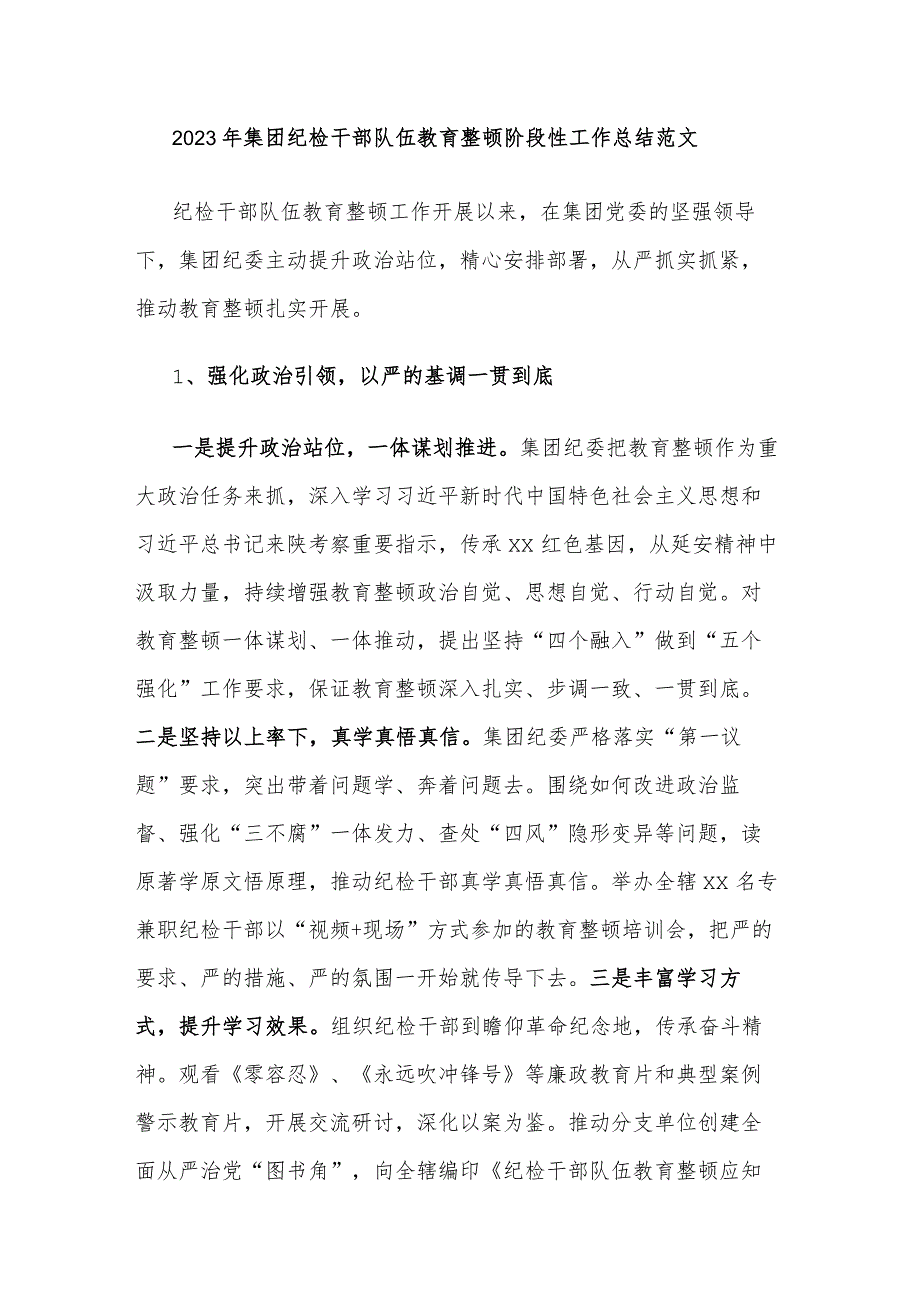 2023年集团纪检干部队伍教育整顿阶段性工作总结范文
纪检干部队伍教育整顿工作开展以来，在集团党委的坚强领导
下，集团纪委主动提升政治站位，精心安排部署，从严抓实抓紧，
推动教育整顿扎实开展。
1、强化政治引领，以严的基调一贯到底
一是提升政治站位，一体谋划推进。集团纪委把教育整顿作为重
大政治任务来抓，深入学习习近平新时代中国特色社会主义思想和
习近平总书记来陕考察重要指示，传承XX红色基因，从延安精神中
汲取力量，持续增强教育整顿政治自觉、思想自觉、行动自觉。对
教育整顿一体谋划、一体推动，提出坚持“四个融入”做到“五个
强化”工作要求，保证教育整顿深入扎实、步调一致、一贯到底。
二是坚持以上率下，真学真悟真信。集团纪委严格落实“第一议
题”要求，突出带着问题学、奔着问题去。围绕如何改进政治监
督、强化“三不腐”一体发力、查处“四风”隐形变异等问题，读
原著学原文悟原理，推动纪检干部真学真悟真信。举办全辖XX名专
兼职纪检干部以“视频+现场”方式参加的教育整顿培训会，把严的
要求、严的措施、严的氛围一开始就传导下去。三是丰富学习方
式，提升学习效果。组织纪检干部到瞻仰革命纪念地，传承奋斗精
神。观看《零容忍》、《永远吹冲锋号》等廉政教育片和典型案例
警示教育片，开展交流研讨，深化以案为鉴。推动分支单位创建全
面从严治党“图书角”，向全辖编印《纪检干部队伍教育整顿应知